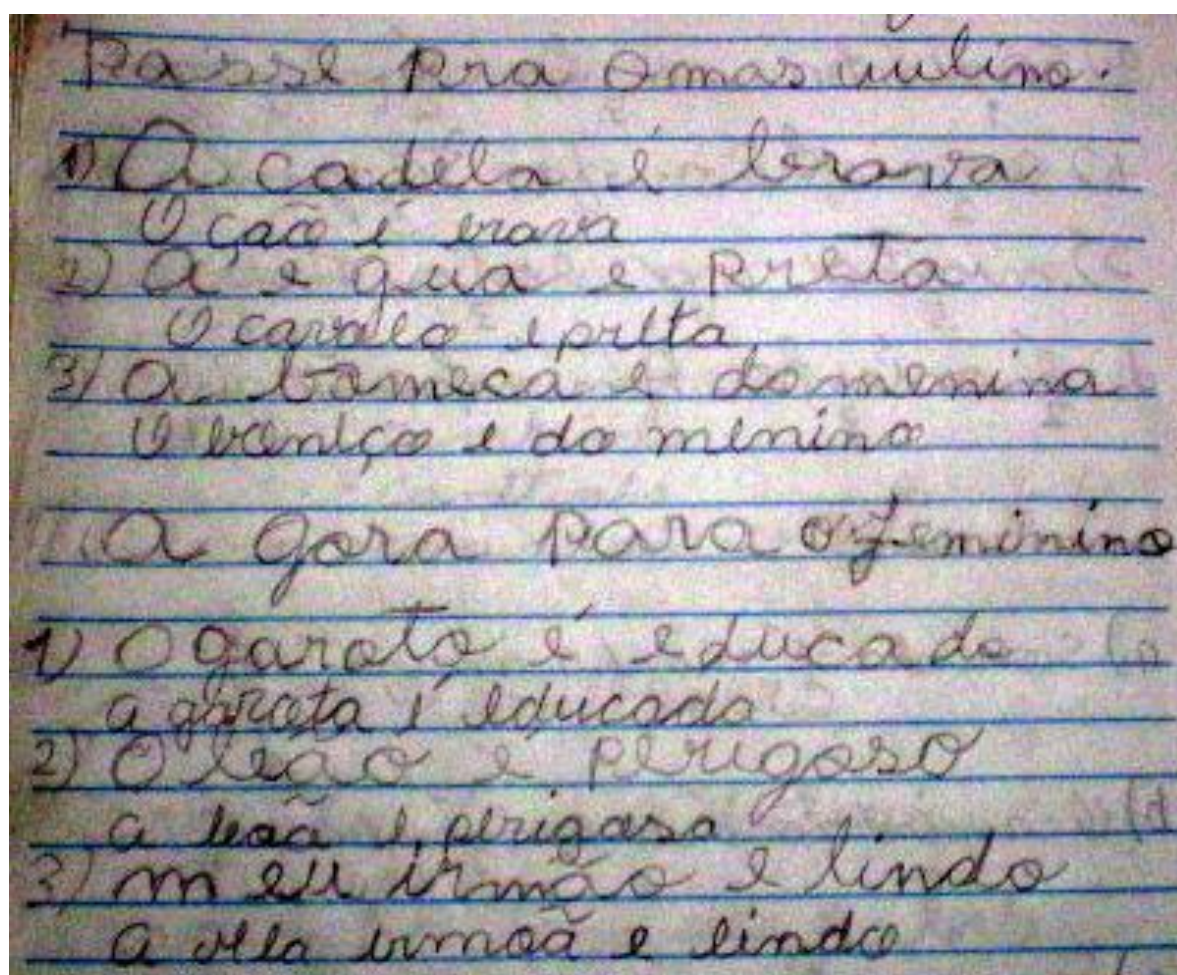 Passe pra o mas cu lino.
1) A cadela é brava
O ção é brava
2) A é gua e preta
O cavalo e preta
3) A boneca e do menina
O boneço e do menino
A gora para o feminino
1) O garoto é educa do
a garota é educado
2) O leão e perigoso
a leoã e perigosa
3) m eu irmão e lindo
a irmoã e lindo